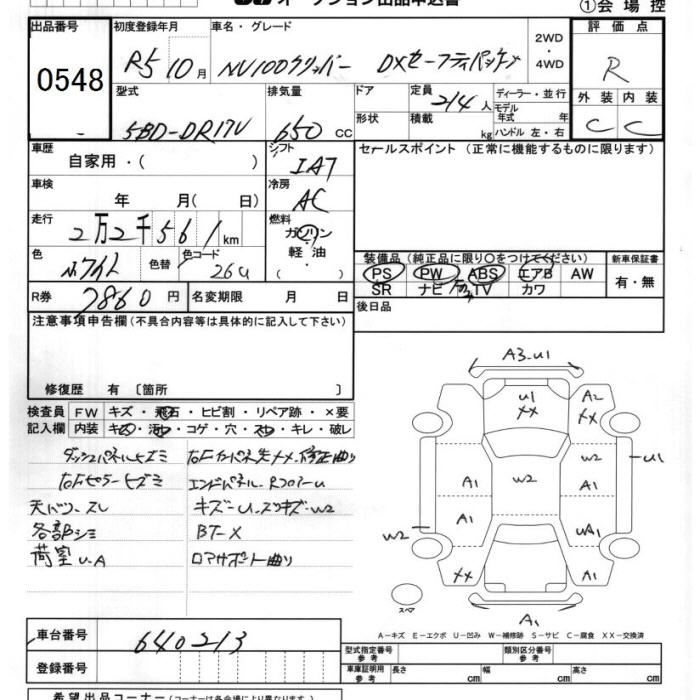 オークション出品申込書
①会場控
出品番号
0548
初度登録年月
R5 10月
車名・グレード
NV100クリッパー DXセーフティパッケージ
2WD
・
4WD
評価点
R
外装 内装
C C
型式
5BD-DR17V
排気量
650 cc
ドア
形状
定員
2/4 人
積載 kg
ディーラー・並行
モデル
年式 年
ハンドル 左・右
車歴
自家用・( )
シフト
IAT
セールスポイント (正常に機能するものに限ります)
車検
年 月( 日)
冷房
AC
走行
2万2千561km
燃料
ガソリン
・
軽油
( )
色
色替
色コード
26U
装備品 (純正品に限り○をつけてください)
PS PW ABS エアB AW
SR ナビ TV カワ
新車保証書
有・無
R券 7860円
名変期限 月 日
後日品
注意事項申告欄(不具合内容等は具体的に記入して下さい)
修復歴 有 〔箇所 〕
検査員
記入欄
FW キズ・飛石・ヒビ割・リペア跡・×要
内装 キズ・汚れ・コゲ・穴・スレ・キレ・破レ
ダッシュパネルヒズミ
右Fピラーヒズミ
天バリ・スレ
各部シミ
荷室U.A
右Fカーパネ先XX・修正曲り
エンドパネル・RフロアーU
キズーU.スリキズーW2
BT-X
ロアサポート曲り
A3.U1
U1
XX
A2
XX
W2
U1
A1
W2
A1
A1
UA1
W2
XX
A1
スペア
A1
A-キズ E-エクボ U-凹み W-補修跡 S-サビ C-腐食 XX-交換済
車台番号
640213
登録番号
型式指定番号
参考
類別区分番号
参考
車庫証明用
参考
長さ cm
幅 cm
高さ cm
希望出品コーナー(コーナーは各会場により異なります。)